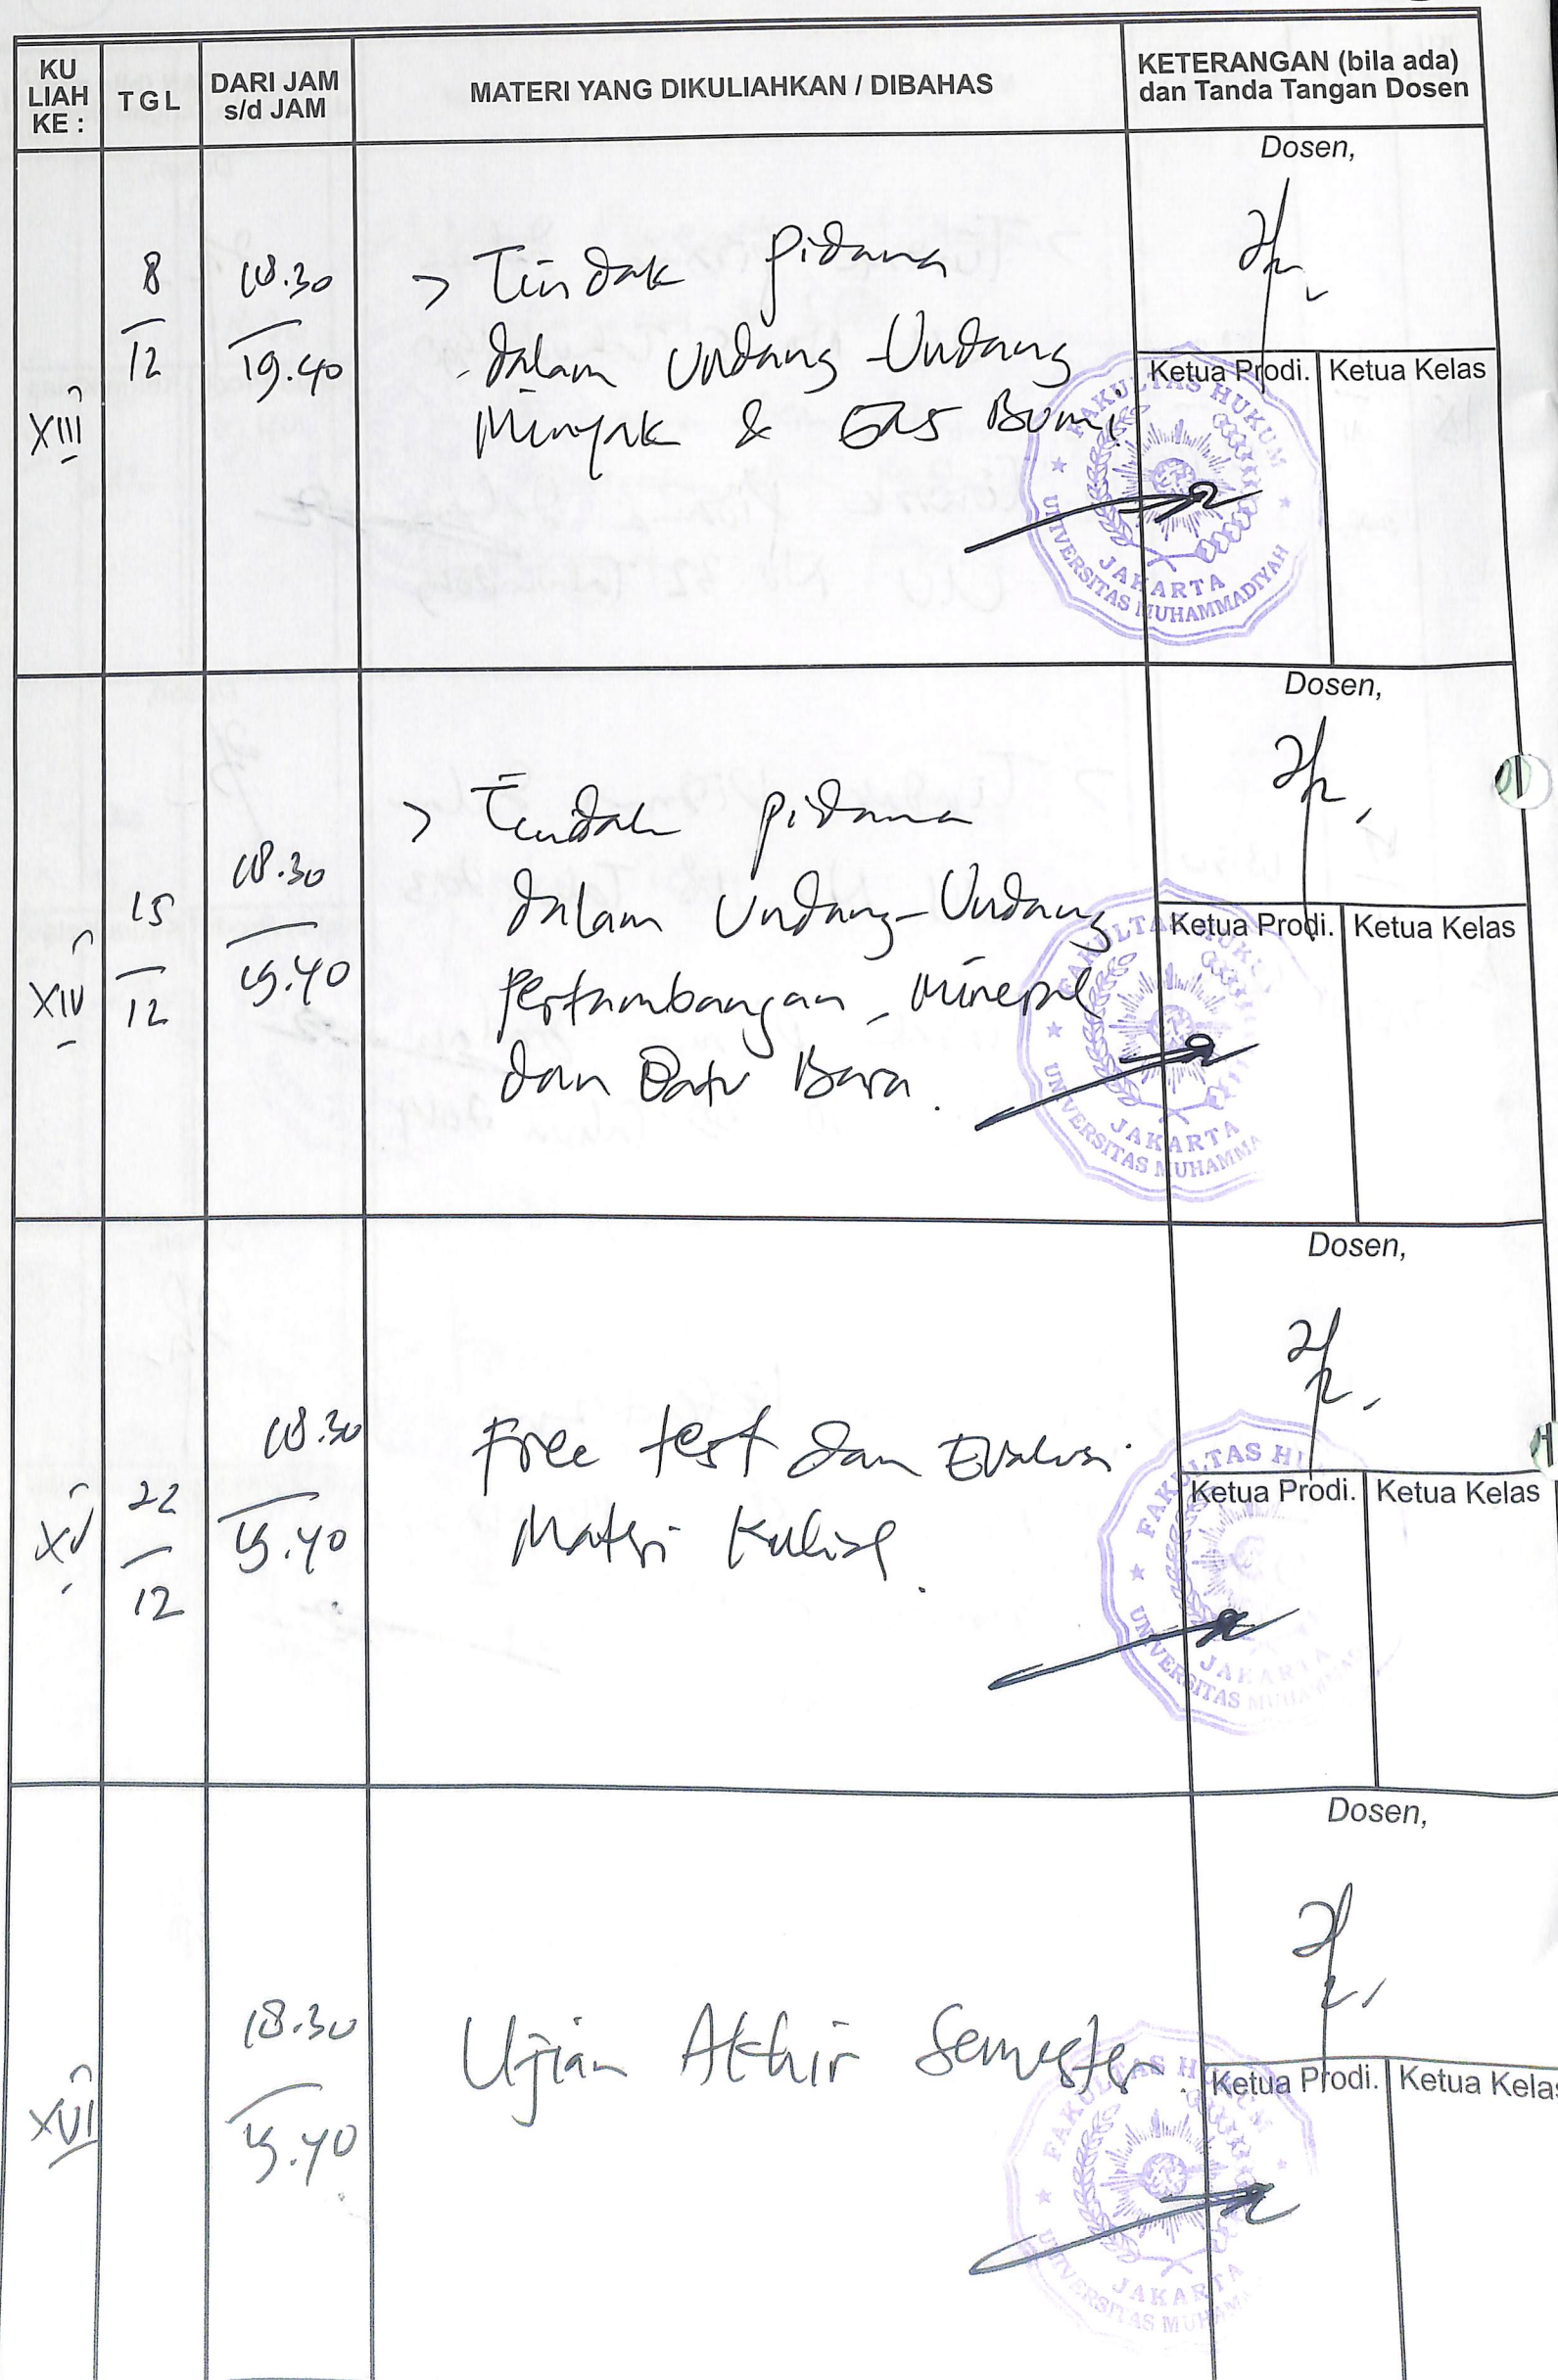 KU LIAH KE :
T G L
DARI JAM s/d JAM
MATERI YANG DIKULIAHKAN / DIBAHAS
KETERANGAN (bila ada) dan Tanda Tangan Dosen
XIII
8
12
18.30
19.40
> Tindak pidana
dalam Undang-Undang
Minyak & Gas Bumi
Dosen,
Ketua Prodi.
Ketua Kelas
FAKULTAS HUKUM
JAKARTA
UNIVERSITAS MUHAMMADIYAH
XIV
15
12
18.30
19.40
> Tindak pidana
dalam Undang-Undang
Pertambangan, Mineral
dan Batu Bara.
Dosen,
Ketua Prodi.
Ketua Kelas
FAKULTAS HUKU
JAKARTA
UNIVERSITAS MUHAMMA
XV
22
12
18.30
19.40
Free test dan Evaluasi
Materi Kuliah.
Dosen,
Ketua Prodi.
Ketua Kelas
FAKULTAS HU
JAKARTA
UNIVERSITAS MUHAMM
XVI
18.30
19.40
Ujian Akhir Semester.
Dosen,
Ketua Prodi.
Ketua Kelas
FAKULTAS HUKUM
JAKARTA
UNIVERSITAS MUHAM